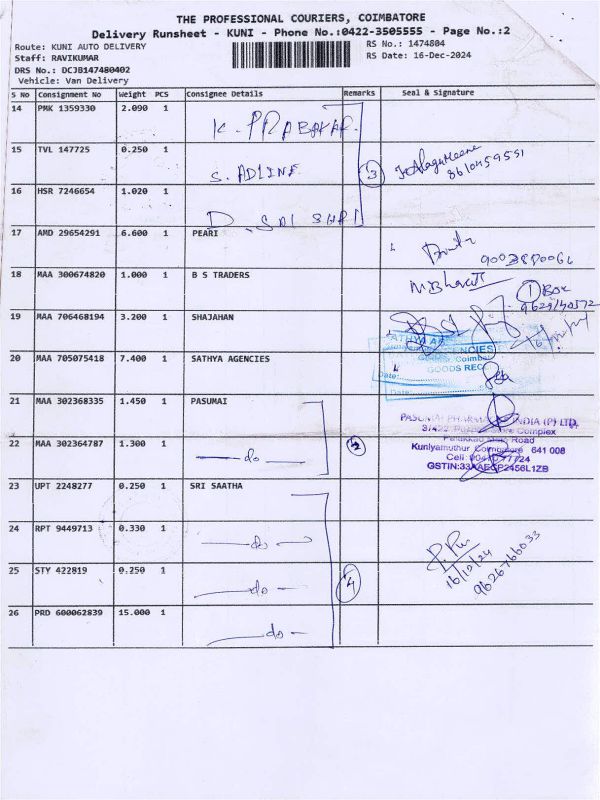 THE PROFESSIONAL COURIERS, COIMBATORE
Delivery Runsheet - KUNI - Phone No.:0422-3505555 - Page No.:2
Route: KUNI AUTO DELIVERY
RS No.: 1474804
Staff: RAVIKUMAR
RS Date: 16-Dec-2024
DRS No.: DCJB147480402
Vehicle: Van Delivery
S No Consignment No Weight PCS Consignee Details Remarks Seal & Signature
14 PMK 1359330 2.090 1 K. PRABAKAR
15 TVL 147725 0.250 1 S. ADLINE 3 8610459551
16 HSR 7246654 1.020 1 D. SAI SHRI
17 AMD 29654291 6.600 1 PEARI
18 MAA 300674820 1.000 1 B S TRADERS 1 Box
19 MAA 706468194 3.200 1 SHAJAHAN
20 MAA 705075418 7.400 1 SATHYA AGENCIES
GOODS REC
Date:
Date:
21 MAA 302368335 1.450 1 PASUMAI
PASUMAI PHARMA INDIA (P) LTD.
Complex
22 MAA 302364787 1.300 1 do 2
Palakkad Main Road
Kuniyamuthur Coimbatore 641 008
GSTIN:33AAECP2456L1ZB
23 UPT 2248277 0.250 1 SRI SAATHA
24 RPT 9449713 0.330 1 do
16/12/24
9626766033
25 STY 422819 0.250 1 do 4
26 PRD 600062839 15.000 1 do